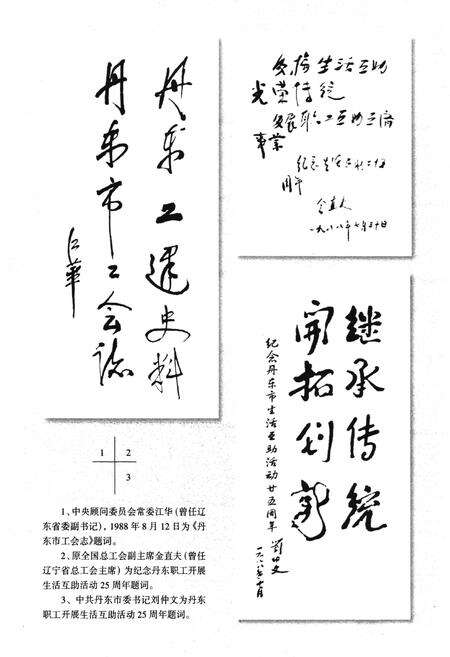 丹东工运史料
丹东市工会志
江华
发扬生活互助
光荣传统
发展职工互助互济
事业
纪念生活互助二十五
周年
金直夫
一九八八年七月三十日
继承传统
开拓创新
纪念丹东市生活互助活动廿五周年
刘仲文
一九八八年七月
1 2
3
1、中央顾问委员会常委江华(曾任辽
东省委副书记),1988年8月12日为《丹
东市工会志》题词。
2、原全国总工会副主席金直夫(曾任
辽宁省总工会主席)为纪念丹东职工开展
生活互助活动25周年题词。
3、中共丹东市委书记刘仲文为丹东
职工开展生活互助活动25周年题词。